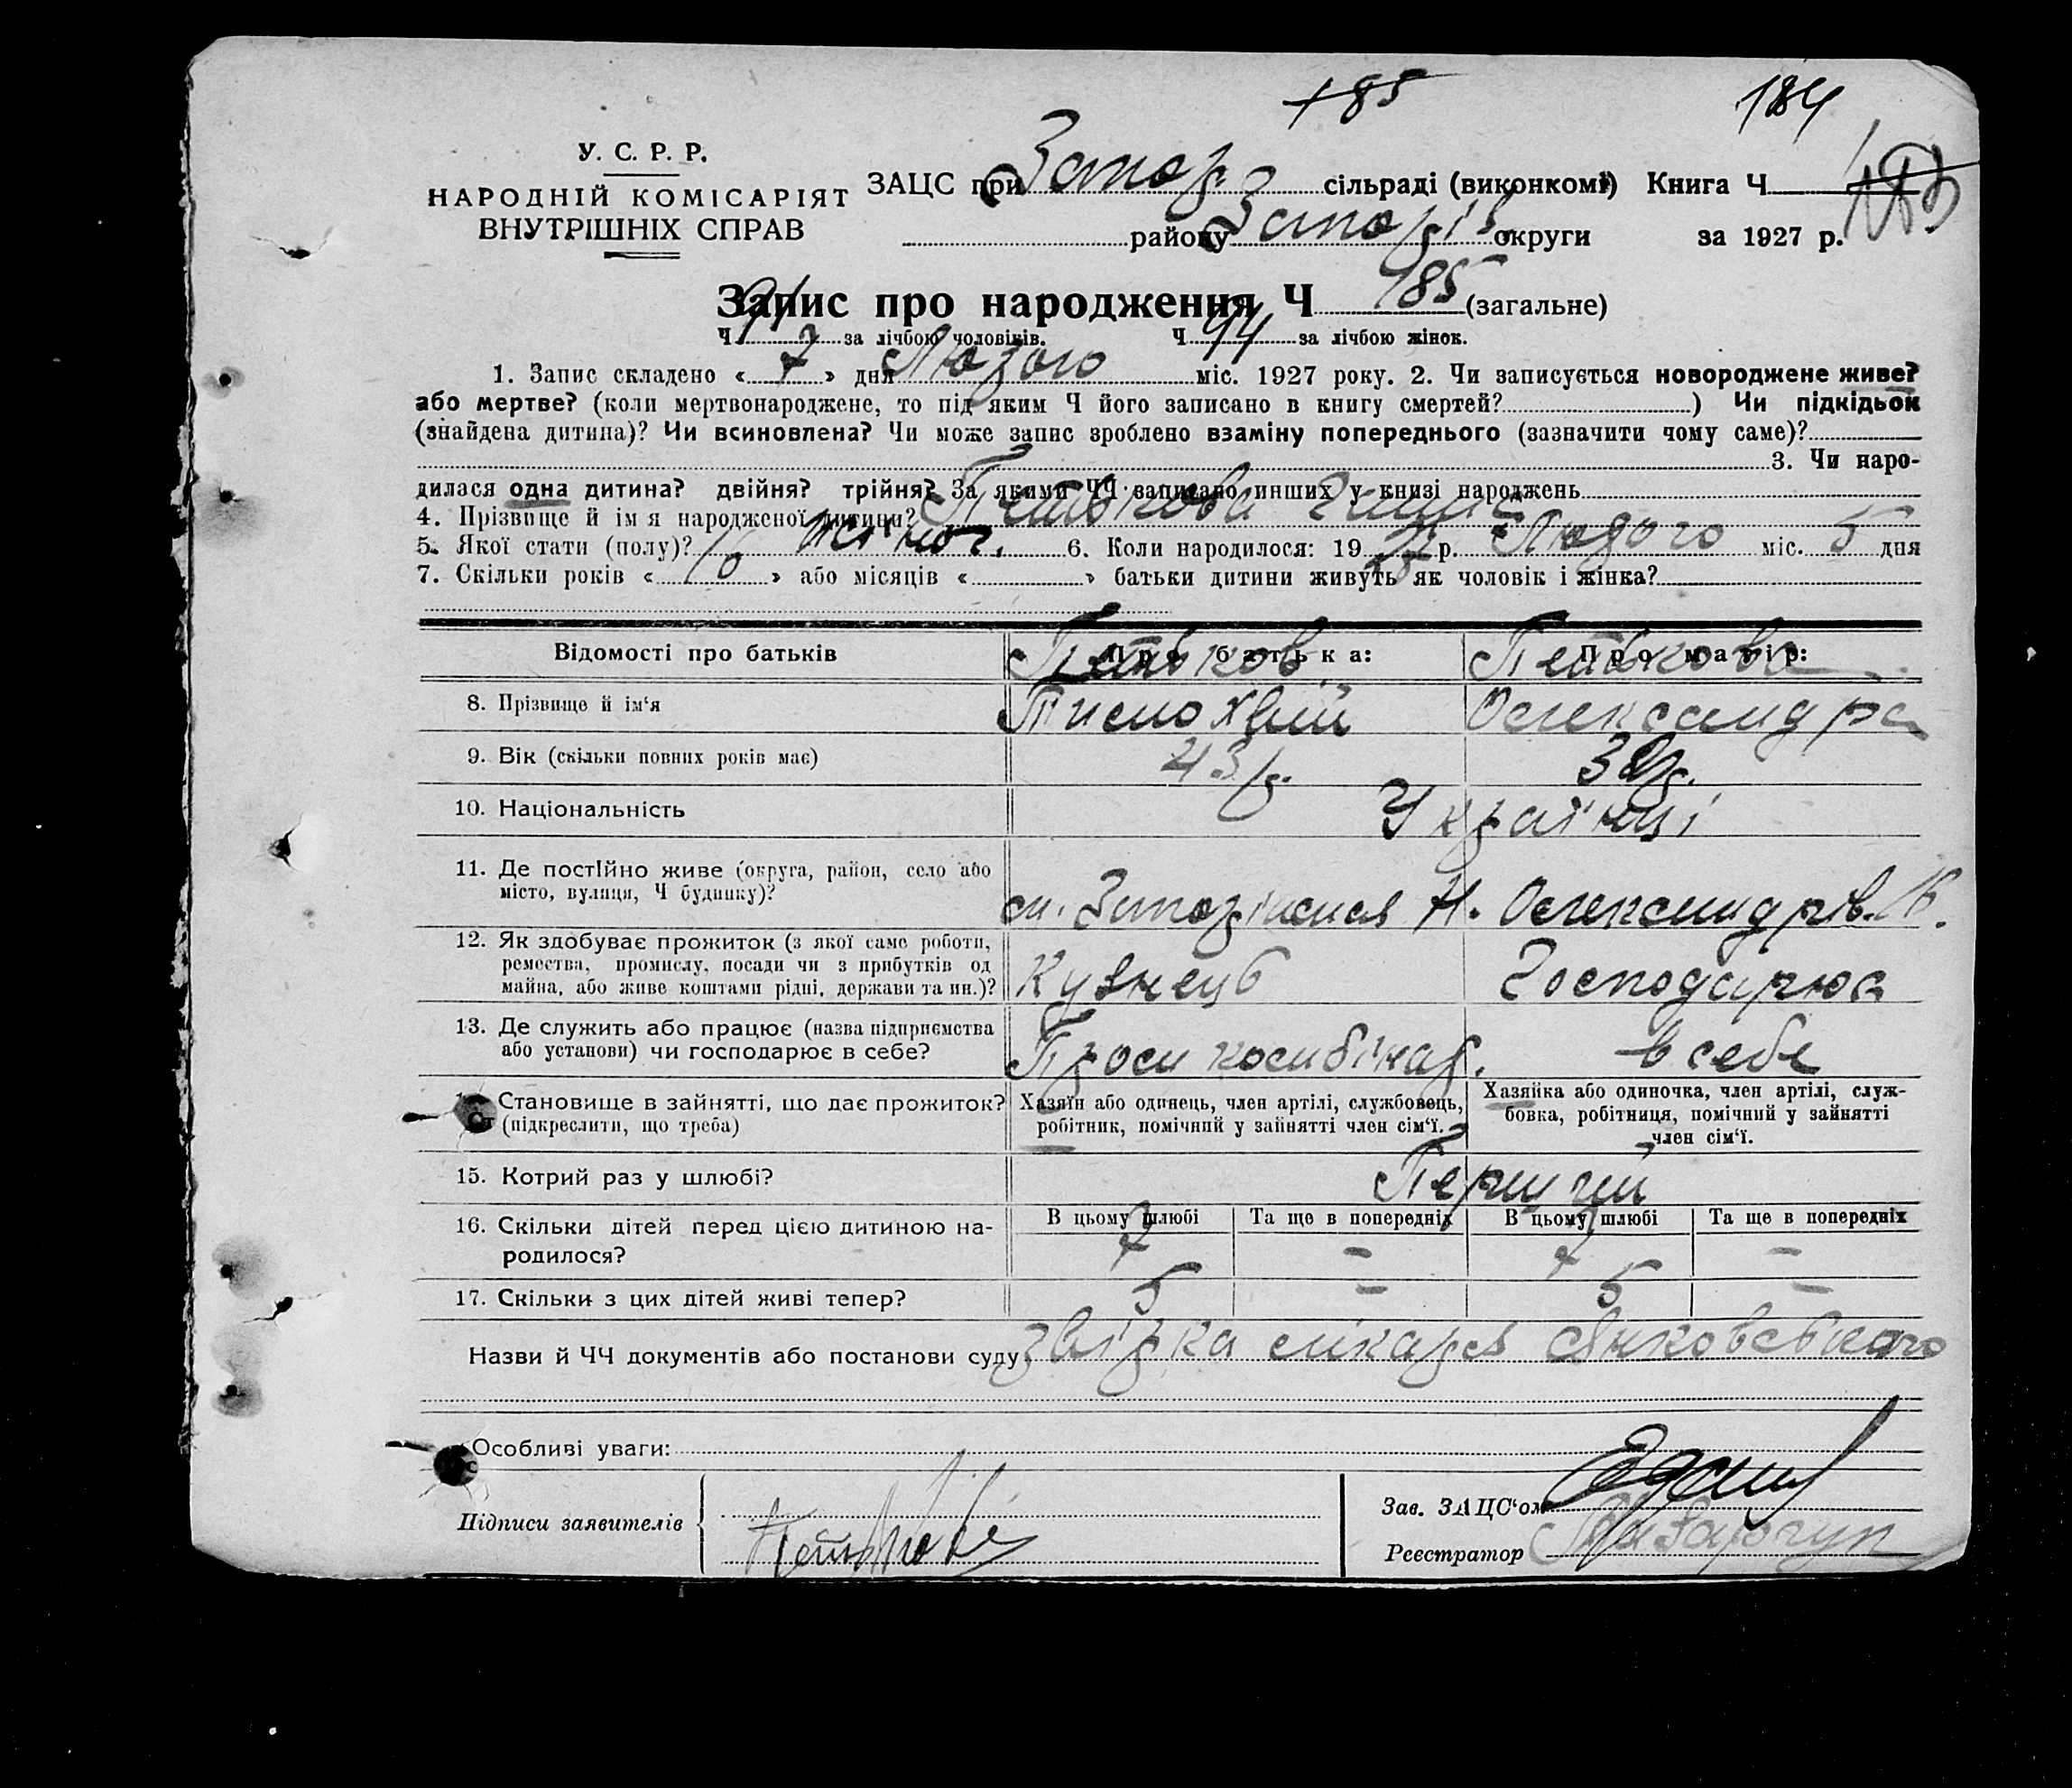 185
184
У. С. Р. Р.
НАРОДНІЙ КОМІСАРІЯТ
ВНУТРІШНІХ СПРАВ
ЗАЦС при Запор. сільраді (виконкомі) Книга Ч
району Запоріз. округи за 1927 р.
Запис про народження Ч 185 (загальне)
Ч 91 за лічбою чоловіків. Ч 94 за лічбою жінок.
1. Запис складено « 7 » дня Лютого міс. 1927 року. 2. Чи записується новороджене живе?
або мертве? (коли мертвонароджене, то під яким Ч його записано в книгу смертей? ) Чи підкідьок
(знайдена дитина)? Чи всиновлена? Чи може запис зроблено взаміну попереднього (зазначити чому саме)?
3. Чи наро-
дилася одна дитина? двійня? трійня? За якими ЧЧ записано инших у книзі народжень
4. Прізвище й ім'я народженої дитини? Петькова
5. Якої стати (полу)? жіноч. 6. Коли народилося: 19 27 р. Лютого міс. 5 дня
7. Скільки років « 16 » або місяців « » батьки дитини живуть як чоловік і жінка?
Відомості про батьків Про батька: Про матір:
Петьков Петькова
8. Прізвище й ім'я Тимохвій Олександра
9. Вік (скільки повних років має) 43 р.
10. Національність Українці
11. Де постійно живе (округа, район, село або
місто, вулиця, Ч будинку)? м. Запоріжжя Н. Олександрів. 16.
12. Як здобуває прожиток (з якої саме роботи,
ремества, промислу, посади чи з прибутків од
майна, або живе коштами рідні, держави та ин.)? Кузнець Господарює
13. Де служить або працює (назва підприємства
або установи) чи господарює в себе? Пром комбінар. в себе
Становище в зайнятті, що дає прожиток?
(підкреслити, що треба)
Хазяїн або одинець, член артілі, службовець,
робітник, помічний у зайнятті член сім'ї.
Хазяйка або одиночка, член артілі, служ-
бовка, робітниця, помічний у зайнятті
член сім'ї.
15. Котрий раз у шлюбі? Перший
16. Скільки дітей перед цією дитиною на-
родилося?
В цьому шлюбі Та ще в попередніх В цьому шлюбі Та ще в попередніх
7 – 7 –
17. Скільки з цих дітей живі тепер? 5 – 5 –
Назви й ЧЧ документів або постанови суду: лікаря Янковського
Особливі уваги:
Підписи заявителів Петькова
Зав. ЗАЦС'ом
Реєстратор